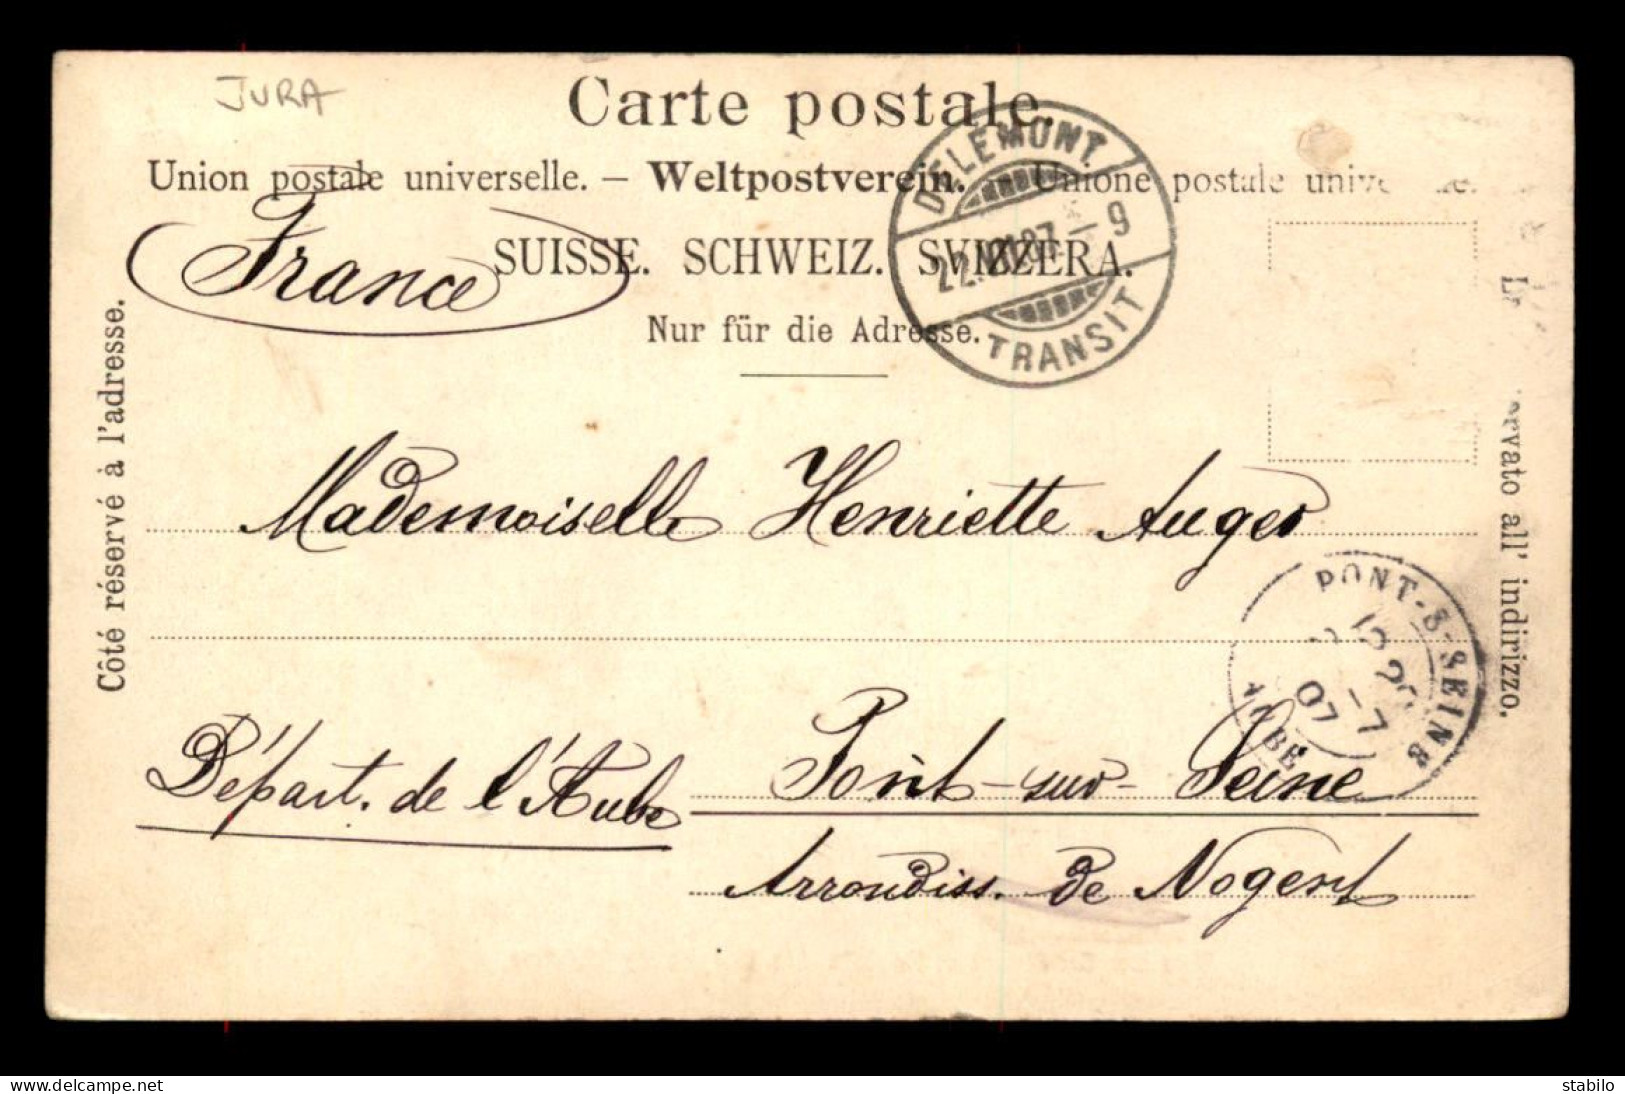 JURA
Carte postale.
Union postale universelle. – Weltpostverein. – Unione postale
SUISSE. SCHWEIZ. SVIZZERA.
Nur für die Adresse.
France
DELÉMONT
22. 07 – 9
TRANSIT
Côté réservé à l'adresse.
all' indirizzo.
Mademoiselle Henriette Auger
PONT-S-SEINE
AUBE
Pont-sur-Seine
Départ. de l'Aube
Arrondiss. de Nogent
delcampe.net
stabilo